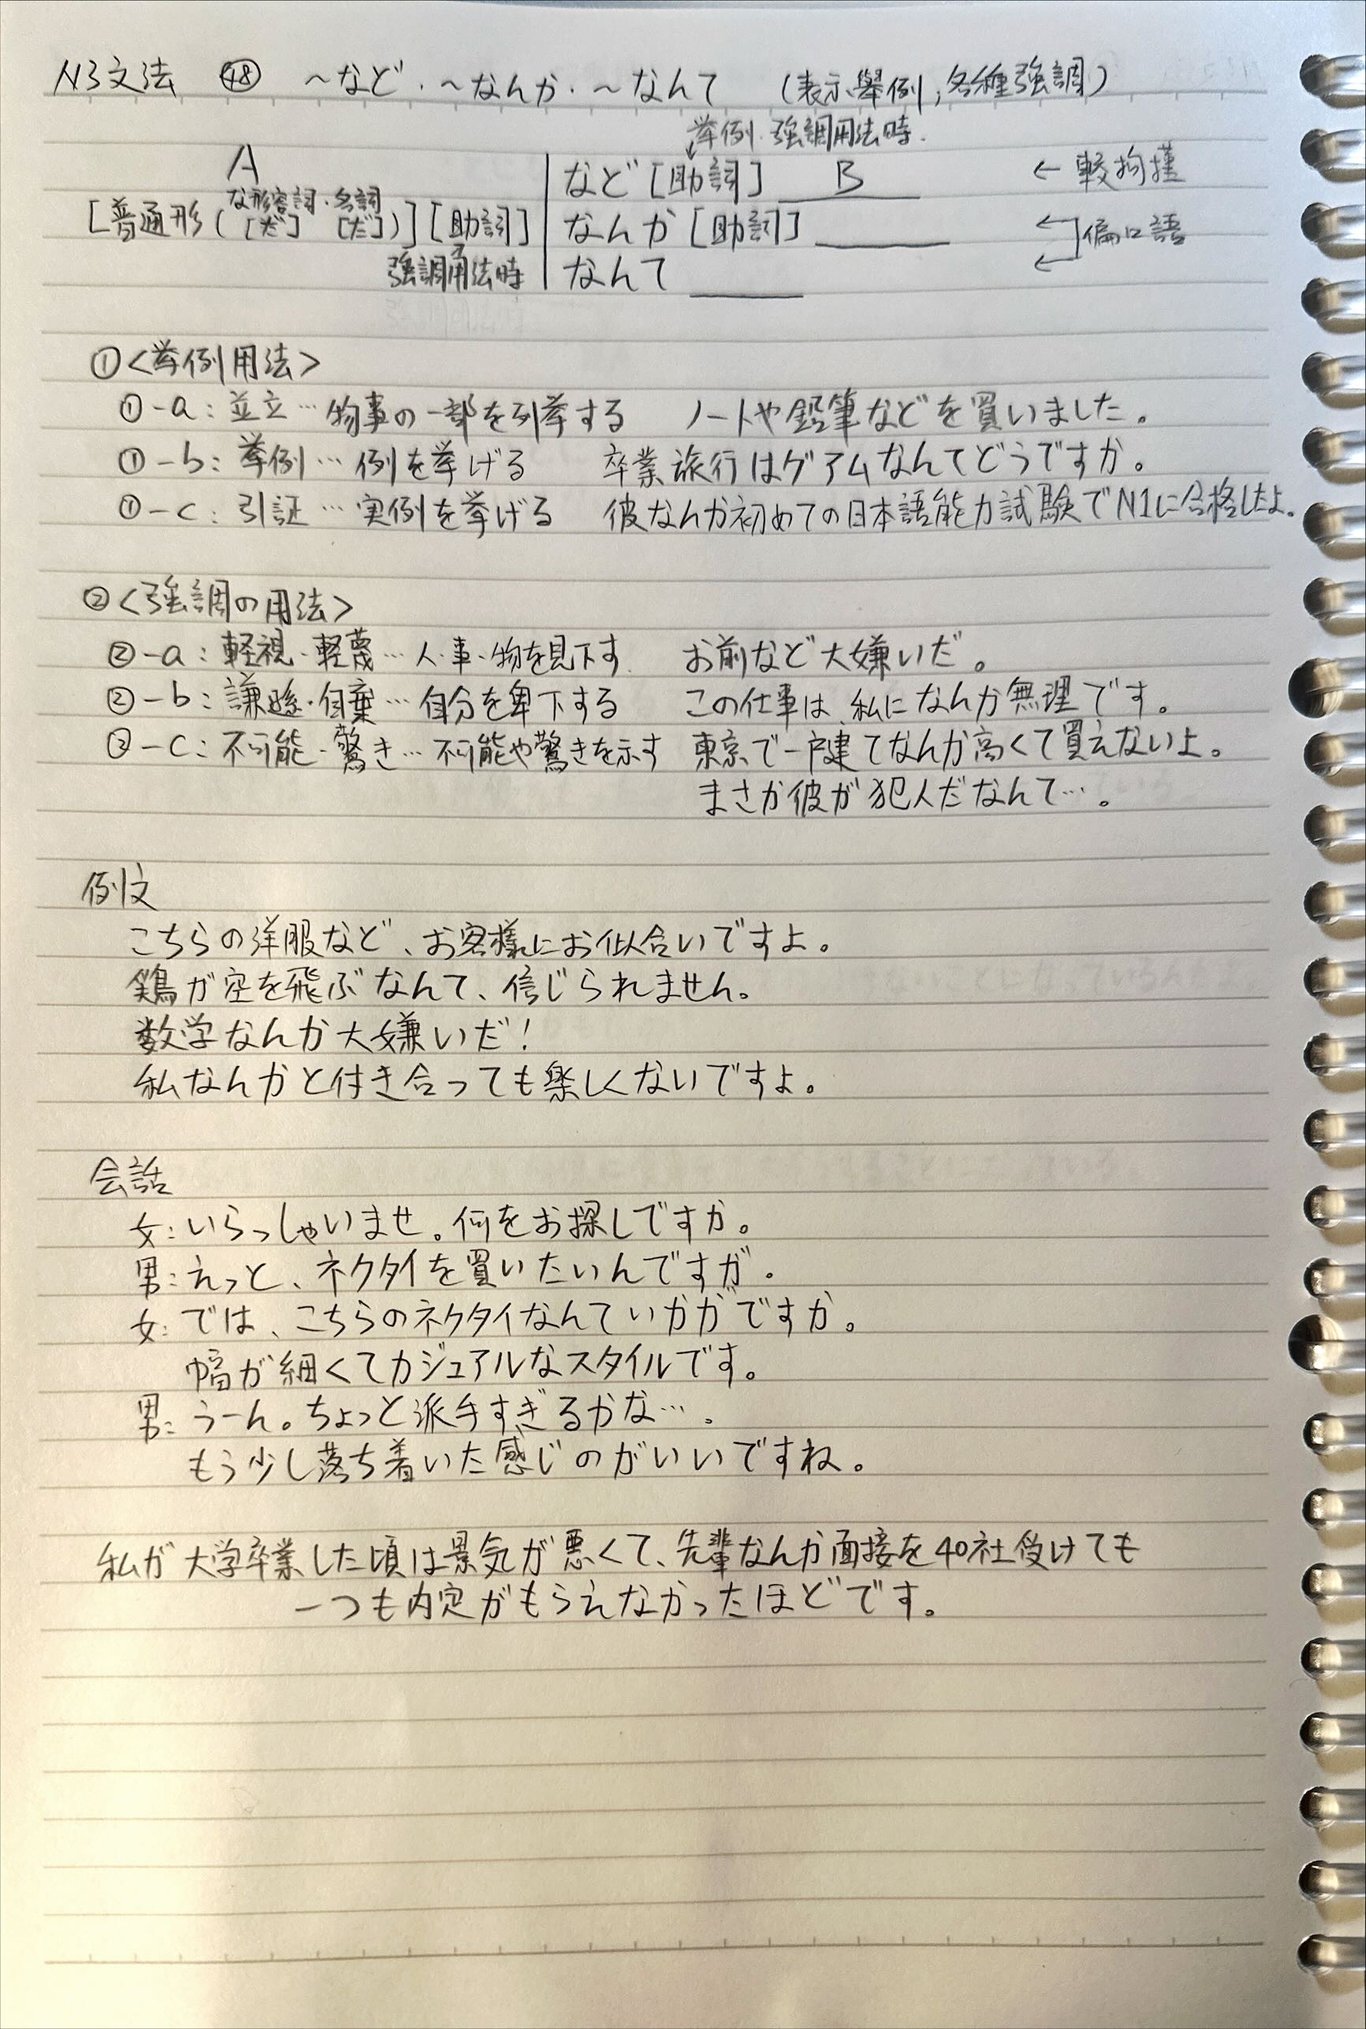 N3文法 ㊽ ～など・～なんか・～なんて (表示舉例,各種強調)
挙例・強調用法時
A など[助詞] B ← 較拘謹
な形容詞・名詞
[普通形([だ] [だ])][助詞] なんか[助詞] ← 偏口語
強調用法時 なんて ←
①<挙例用法>
①-a:並立…物事の一部を列挙する ノートや鉛筆などを買いました。
①-b:挙例…例を挙げる 卒業旅行はグアムなんてどうですか。
①-c:引証…実例を挙げる 彼なんか初めての日本語能力試験でN1に合格したよ。
②<強調の用法>
②-a:軽視・軽蔑…人・事・物を見下す お前など大嫌いだ。
②-b:謙遜・自棄…自分を卑下する この仕事は、私になんか無理です。
②-c:不可能・驚き…不可能や驚きを示す 東京で一戸建てなんか高くて買えないよ。
まさか彼が犯人だなんて…。
例文
こちらの洋服など、お客様にお似合いですよ。
鶏が空を飛ぶなんて、信じられません。
数学なんか大嫌いだ!
私なんかと付き合っても楽しくないですよ。
会話
女:いらっしゃいませ。何をお探しですか。
男:えっと、ネクタイを買いたいんですが。
女:では、こちらのネクタイなんていかがですか。
幅が細くてカジュアルなスタイルです。
男:うーん。ちょっと派手すぎるかな…。
もう少し落ち着いた感じのがいいですね。
私が大学卒業した頃は景気が悪くて、先輩なんか面接を40社受けても
一つも内定がもらえなかったほどです。